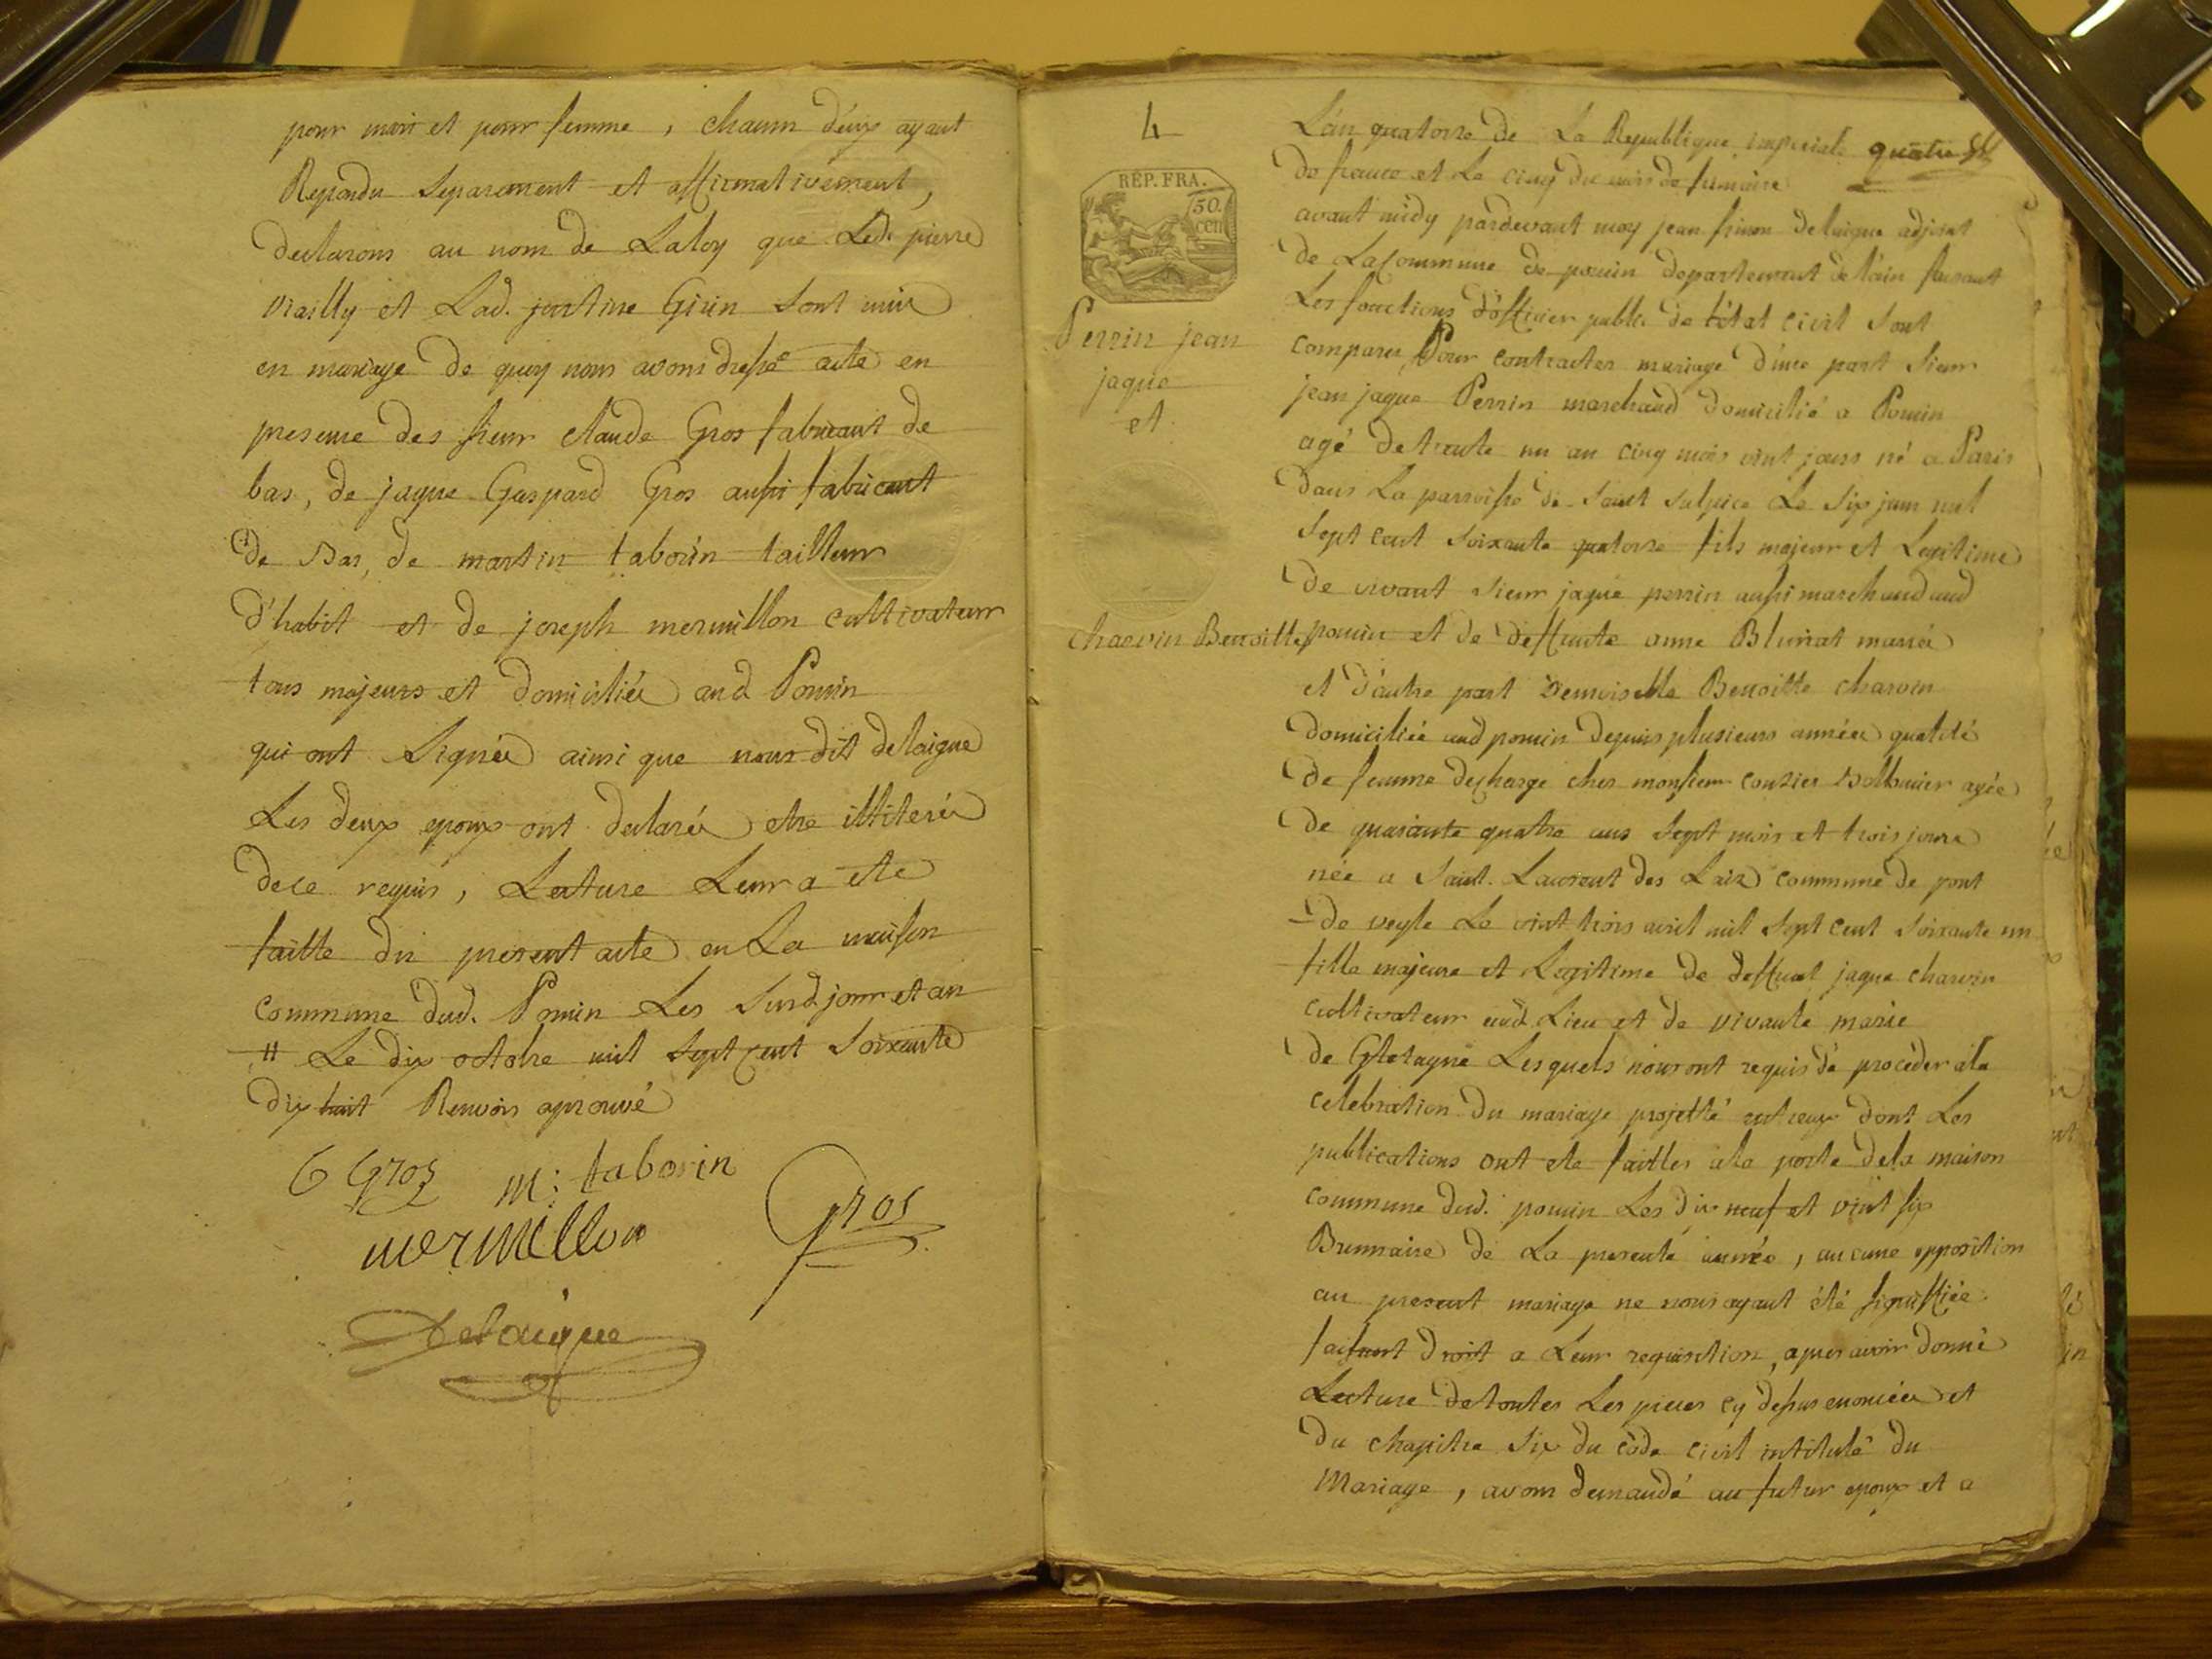 pour mari et pour femme, chacun d'eux ayant
Repondu Separement et affirmativement,
declarons au nom de La loy que Led. pierre
Vrailly et Lad. justine Girin Sont unis
en mariage de quoy nous avons dressé acte en
presence des sieur claude Gros fabricant de
bas, de jaque Gaspard Gros aussi fabricant
de Bas, de martin taborin tailleur
d'habit et de joseph mermillon cultivateur
tous majeurs et domiciliés aud Poncin
qui ont Signés ainsi que nous dit delaigue
Les deux epoux ont declarés etre illiterés
de ce requis, Lecture Leur a ete
faitte du present acte en La maison
commune dud. Poncin Les Susd jour et an
" Le dix octobre mil Sept cent Soixante
dix huit Renvois aprouvé
C Gros m: taborin
mermillon Gros
Delaigue
4
RÉP. FRA.
50.
cen
Perrin jean
jaque
et
charvin Benoitte
L'an quatorze de La Republique imperiale quatre
de france et Le cinq du mois de frimaire
avant midy pardevant moy jean simon delaigue adjoint
de La Commune de poncin departement de l'ain faisant
Les fonctions d'officier public de l'état civil Sont
comparus Pour contracter mariage d'une part Sieur
jean jaque Perrin marchand domicilié a Poncin
agé de trente un an cinq mois vint jours né a Paris
dans La parroisse de Saint Sulpice Le Six juin mil
Sept cent Soixante quatorze fils majeur et Legitime
de vivant Sieur jaque perrin aussi marchand aud
poncin et de deffunte anne Blunat mariés
et d'autre part demoiselle Benoitte charvin
domiciliée aud poncin depuis plusieurs années qualité
de femme de charge chez monsieur agée
de quarante quatre ans Sept mois et trois jours
née a Saint. Laurent des Laiz commune de pont
de veyle Le vint trois avril mil Sept cent Soixante un
fille majeure et Legitime de deffunt jaque charvin
cultivateur aud. Lieu et de vivante marie
de Gletagne Lesquels nous ont requis de procéder a la
celebration du mariage projetté entr'eux dont Les
publications ont ete faittes a la porte de la maison
commune dud. poncin Les dix neuf et vint six
Brumaire de La presente année, aucune opposition
au present mariage ne nous ayant été signiffiée
faisant droit a Leur requisition, apres avoir donné
Lecture de toutes Les pieces cy dessus enoncées et
du chapitre Six du code civil intitulé du
Mariage, avons demandé au futur epoux et a